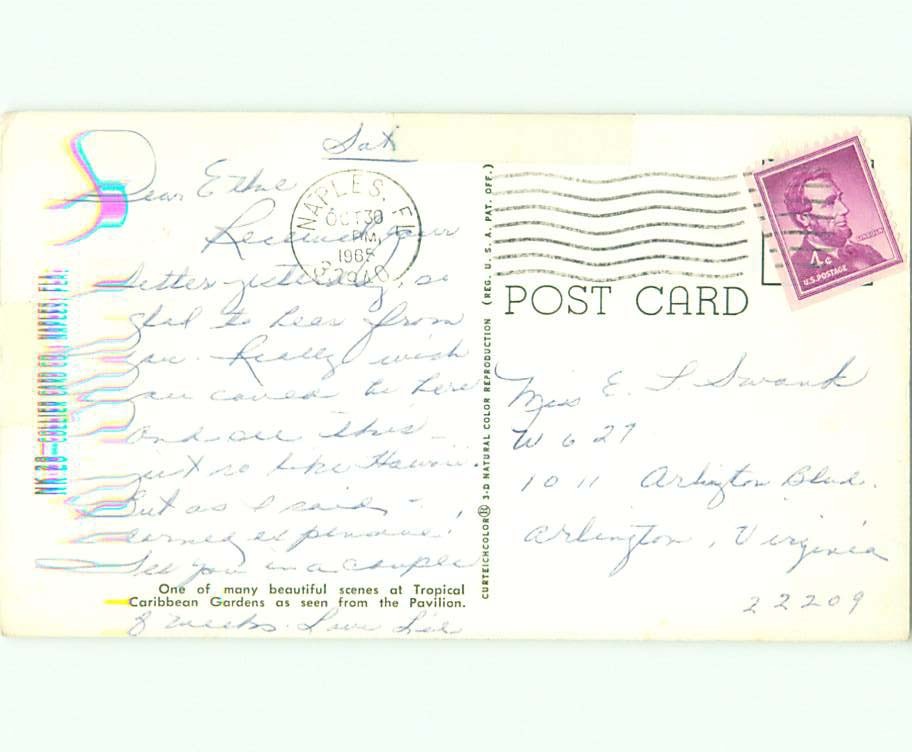 Sat
Dear Ethie
Received your
letter yesterday, so
glad to hear from
you. Really wish
you could be here
and see this –
just so like Hawaii.
But as I said –
darned expensive!
See you in a couple
One of many beautiful scenes at Tropical
Caribbean Gardens as seen from the Pavilion.
of weeks. Love
NK-28—COLLIER CARD CO., NAPLES, FLA.
CURTEICHCOLOR® 3-D NATURAL COLOR REPRODUCTION (REG. U. S. A. PAT. OFF.)
NAPLES, FL
OCT 30
PM
1965
POST CARD
LINCOLN
4¢
U.S. POSTAGE
Miss E. L Swank
W 627
1011 Arlington Blvd.
Arlington, Virginia
22209